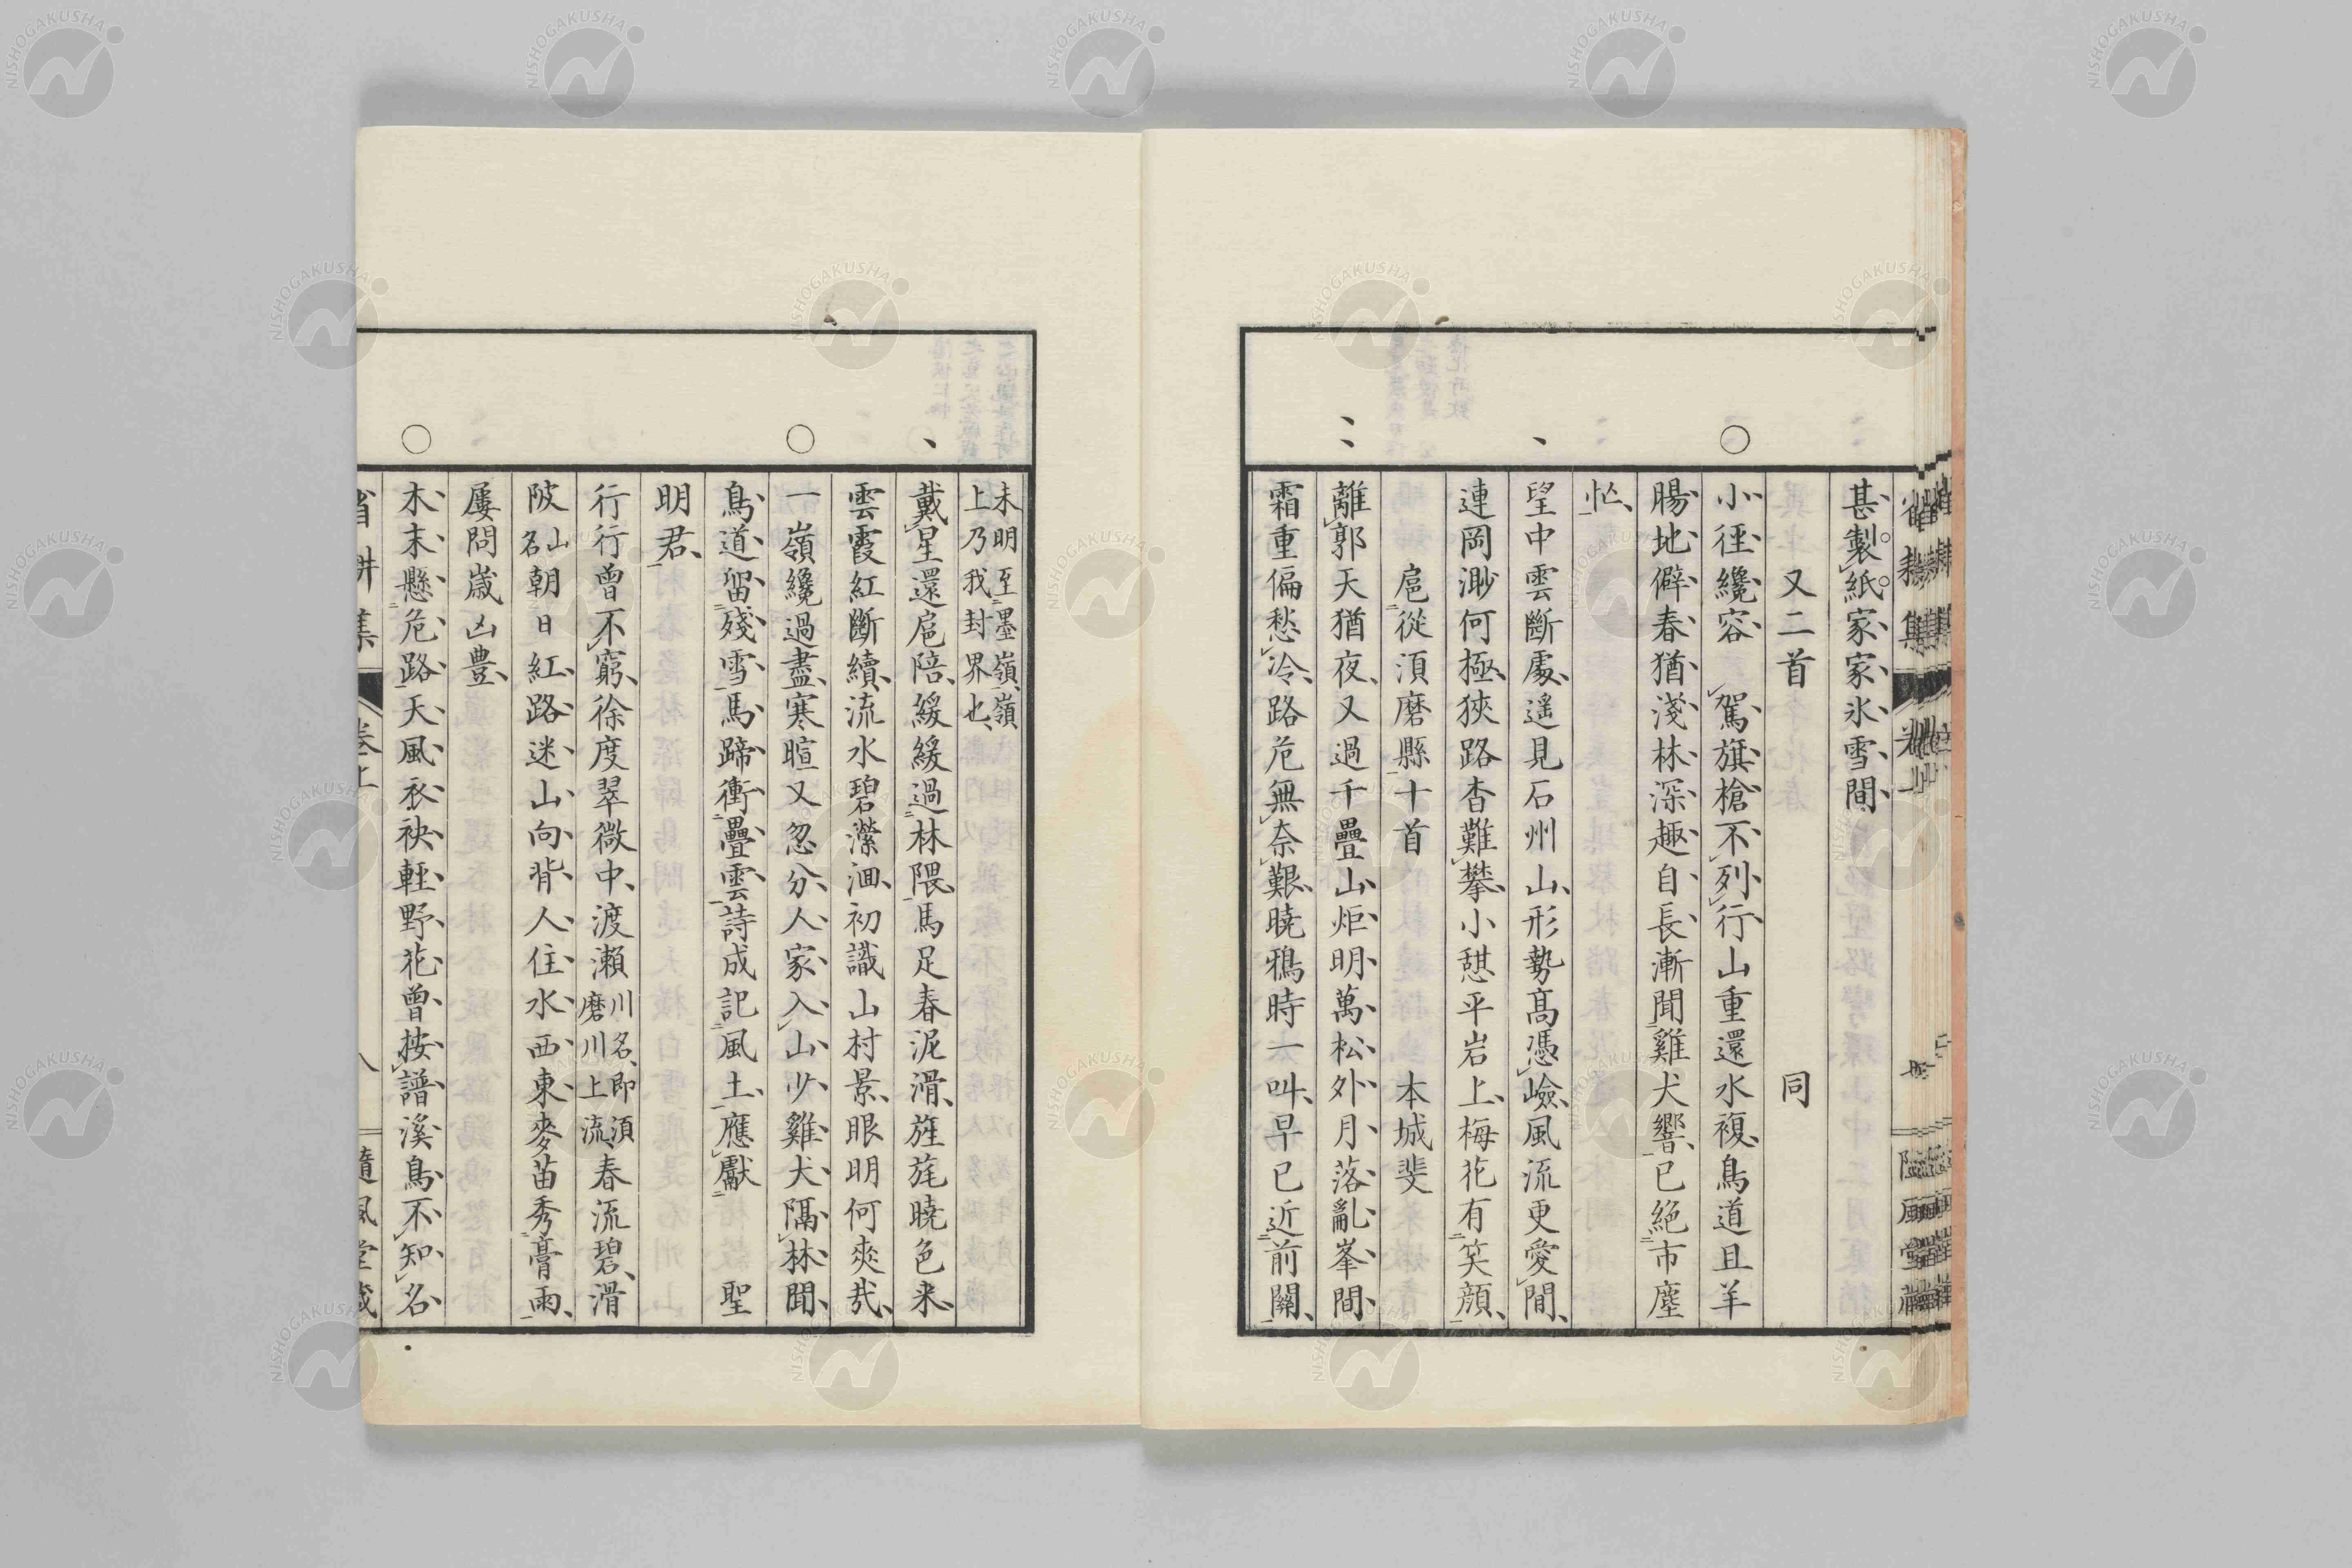 甚製紙家家氷雪間
又二首 同
小徑纔容 駕旗槍不列行山重還水複鳥道且羊
腸地僻春猶淺林深趣自長漸聞雞犬響已絶市塵
忙
望中雲斷處遥見石州山形勢髙憑嶮風流更愛間
連岡渺何極狹路杳難攀小憩平岩上梅花有笑顔
扈從湏磨縣十首 本城斐
離郭天猶夜又過千疊山炬明萬松外月落亂峯間
霜重偏愁冷路危無奈艱曉鴉時一叫早已近前關
未明至墨嶺嶺
上乃我封界也
戴星還扈陪緩緩過林隈馬足春泥滑旌旄曉色来
雲霞紅斷續流水碧瀠洄初識山村景眼明何爽哉
一嶺纔過盡寒暄又忽分人家入山少雞犬隔林聞
鳥道留殘雪馬蹄衝疊雲詩成記風土應獻 聖
明君
行行曾不窮徐度翠微中渡瀬川名即湏磨川上流春流碧滑
陂山名朝日紅路迷山向背人住水西東麥苗秀膏雨
屢問歳凶豊
木末懸危路天風衣袂輕野花曽按譜溪鳥不知名
省耕集 卷上 八 隨風堂藏
NISHOGAKUSHA